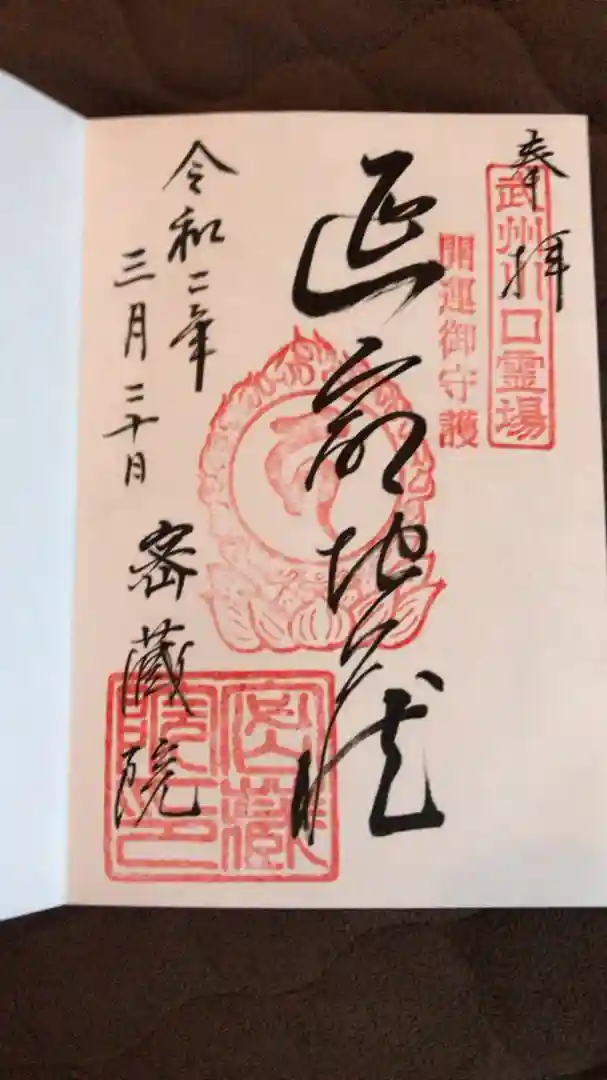 奉拝
武州川口霊場
開運御守護
延命地蔵
令和二年
三月二十日
密蔵院
密蔵院印